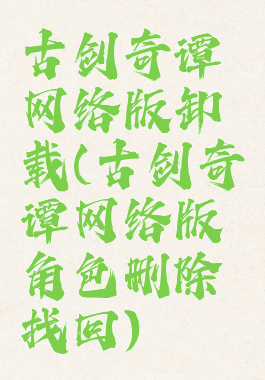 古剑奇谭
网络版卸
载(古剑奇
谭网络版
角色删除
找回)